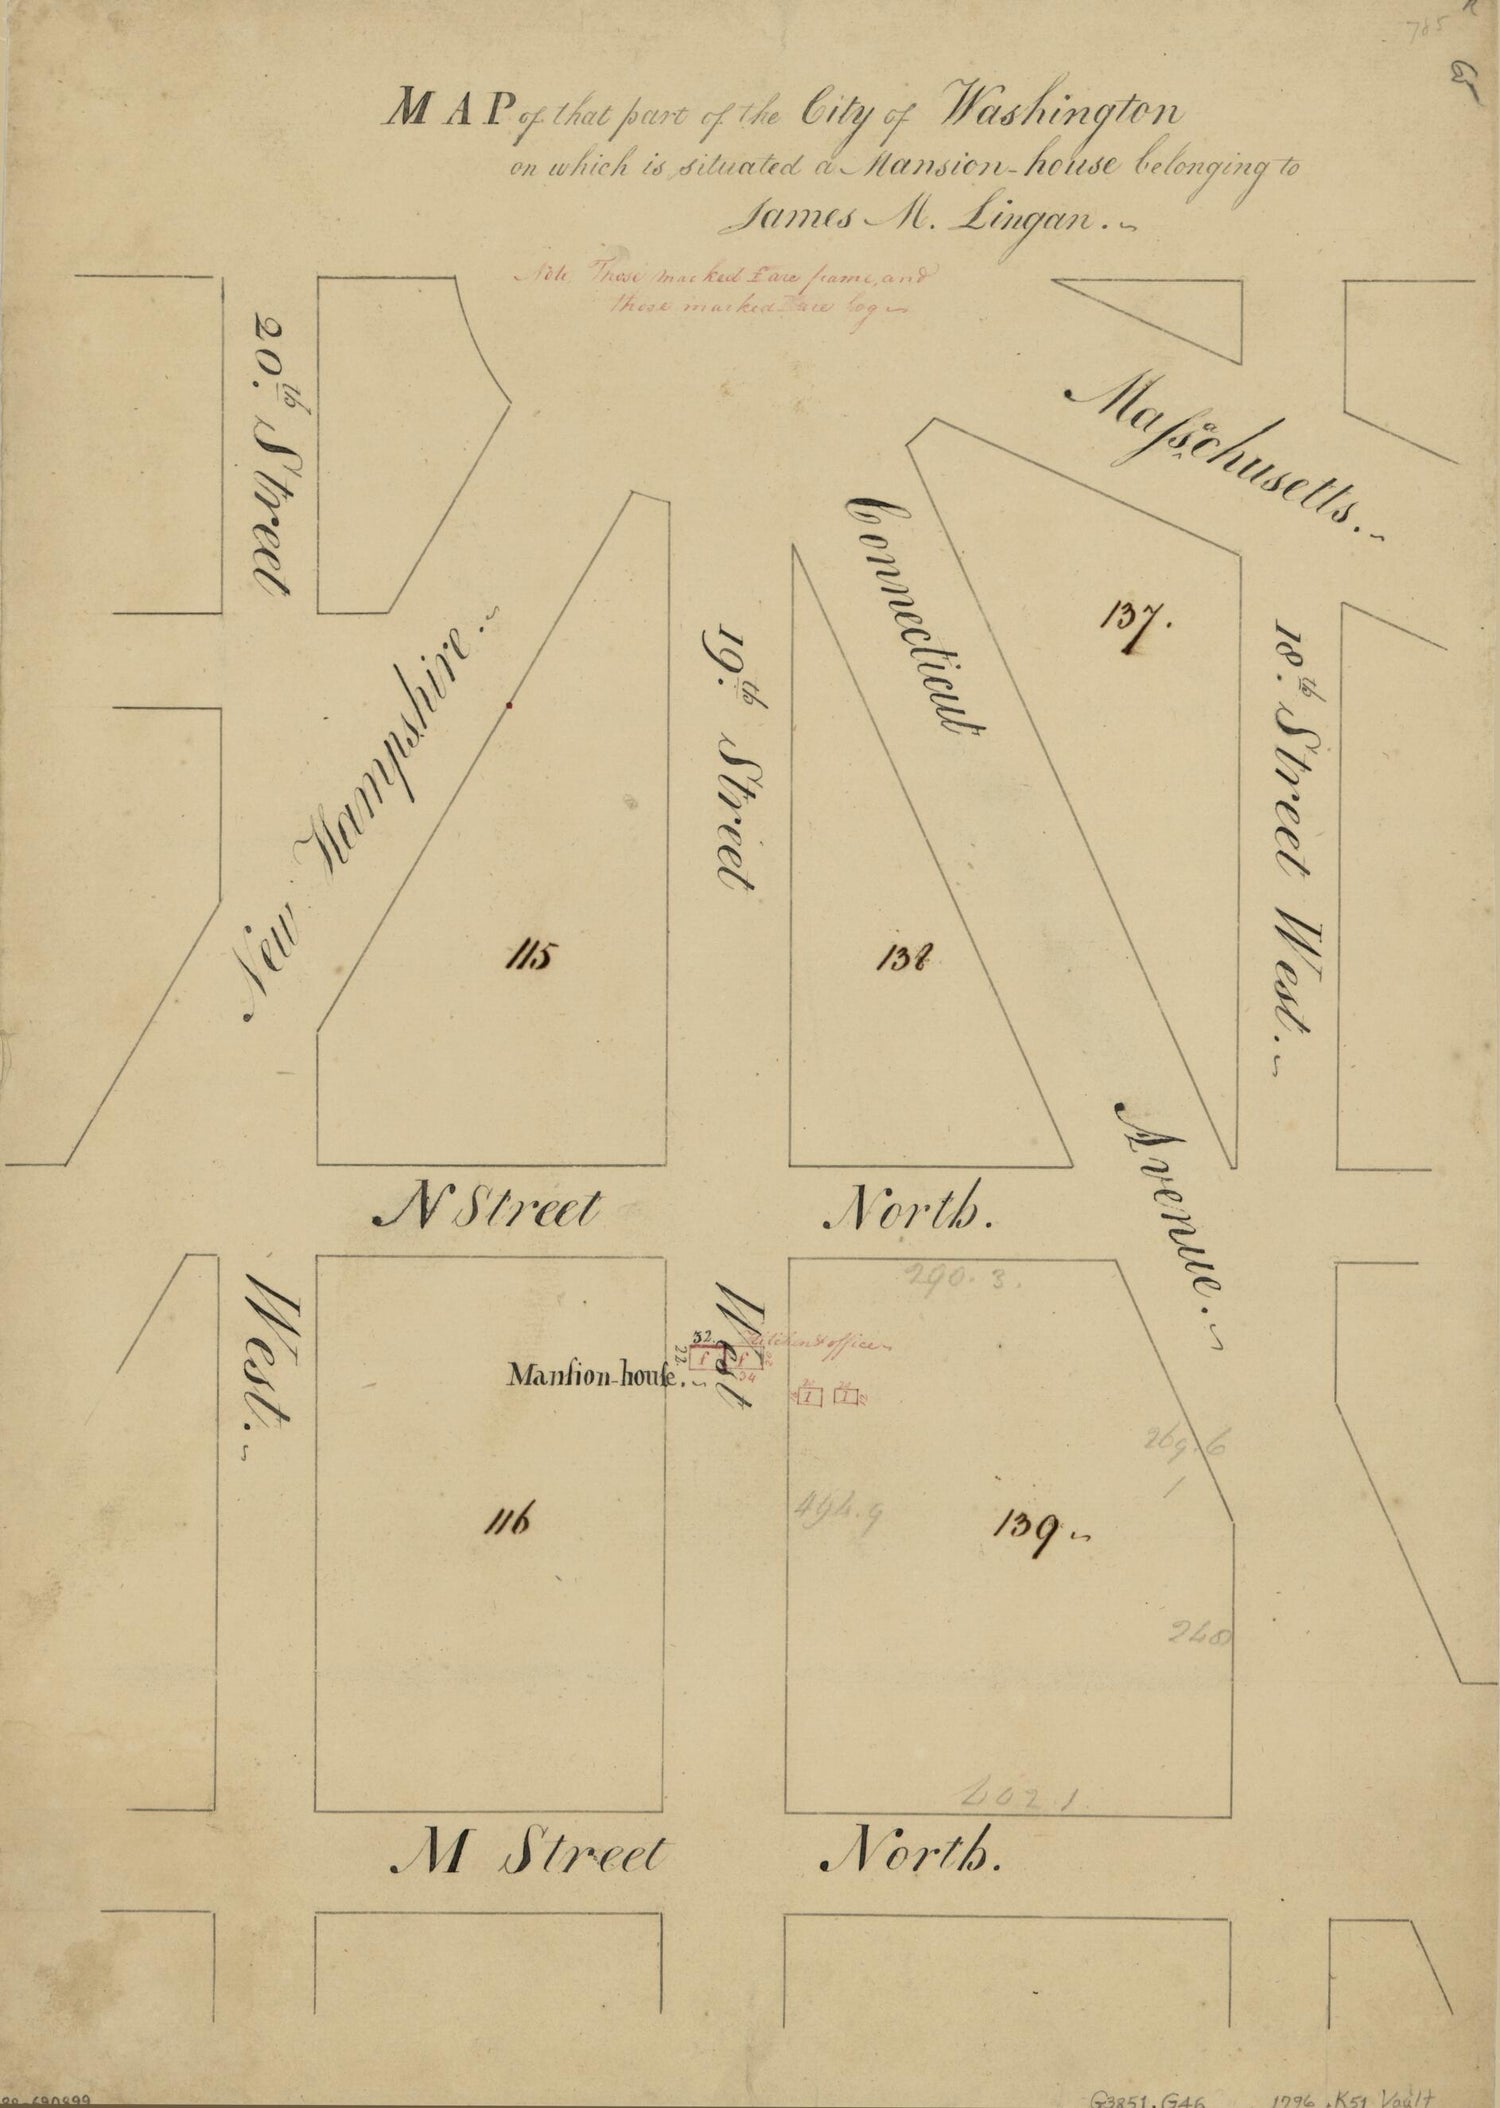 785
MAP of that part of the City of Washington
on which is situated a Mansion-house belonging to
James M. Lingan.
Note, Those marked F are frame, and
those marked are log
20.th Street
Massachusetts.
Connecticut
137.
New Hampshire.
19.th Street
18.th Street West.
115
138
Avenue.
N Street North.
290.3.
West.
West
32.
22
Kitchen & office
f f
34
Mansion-house.
I I
269.6
494.9
116
139
248
602.1
M Street North.
G3851.G46 1796 .K51 Vault